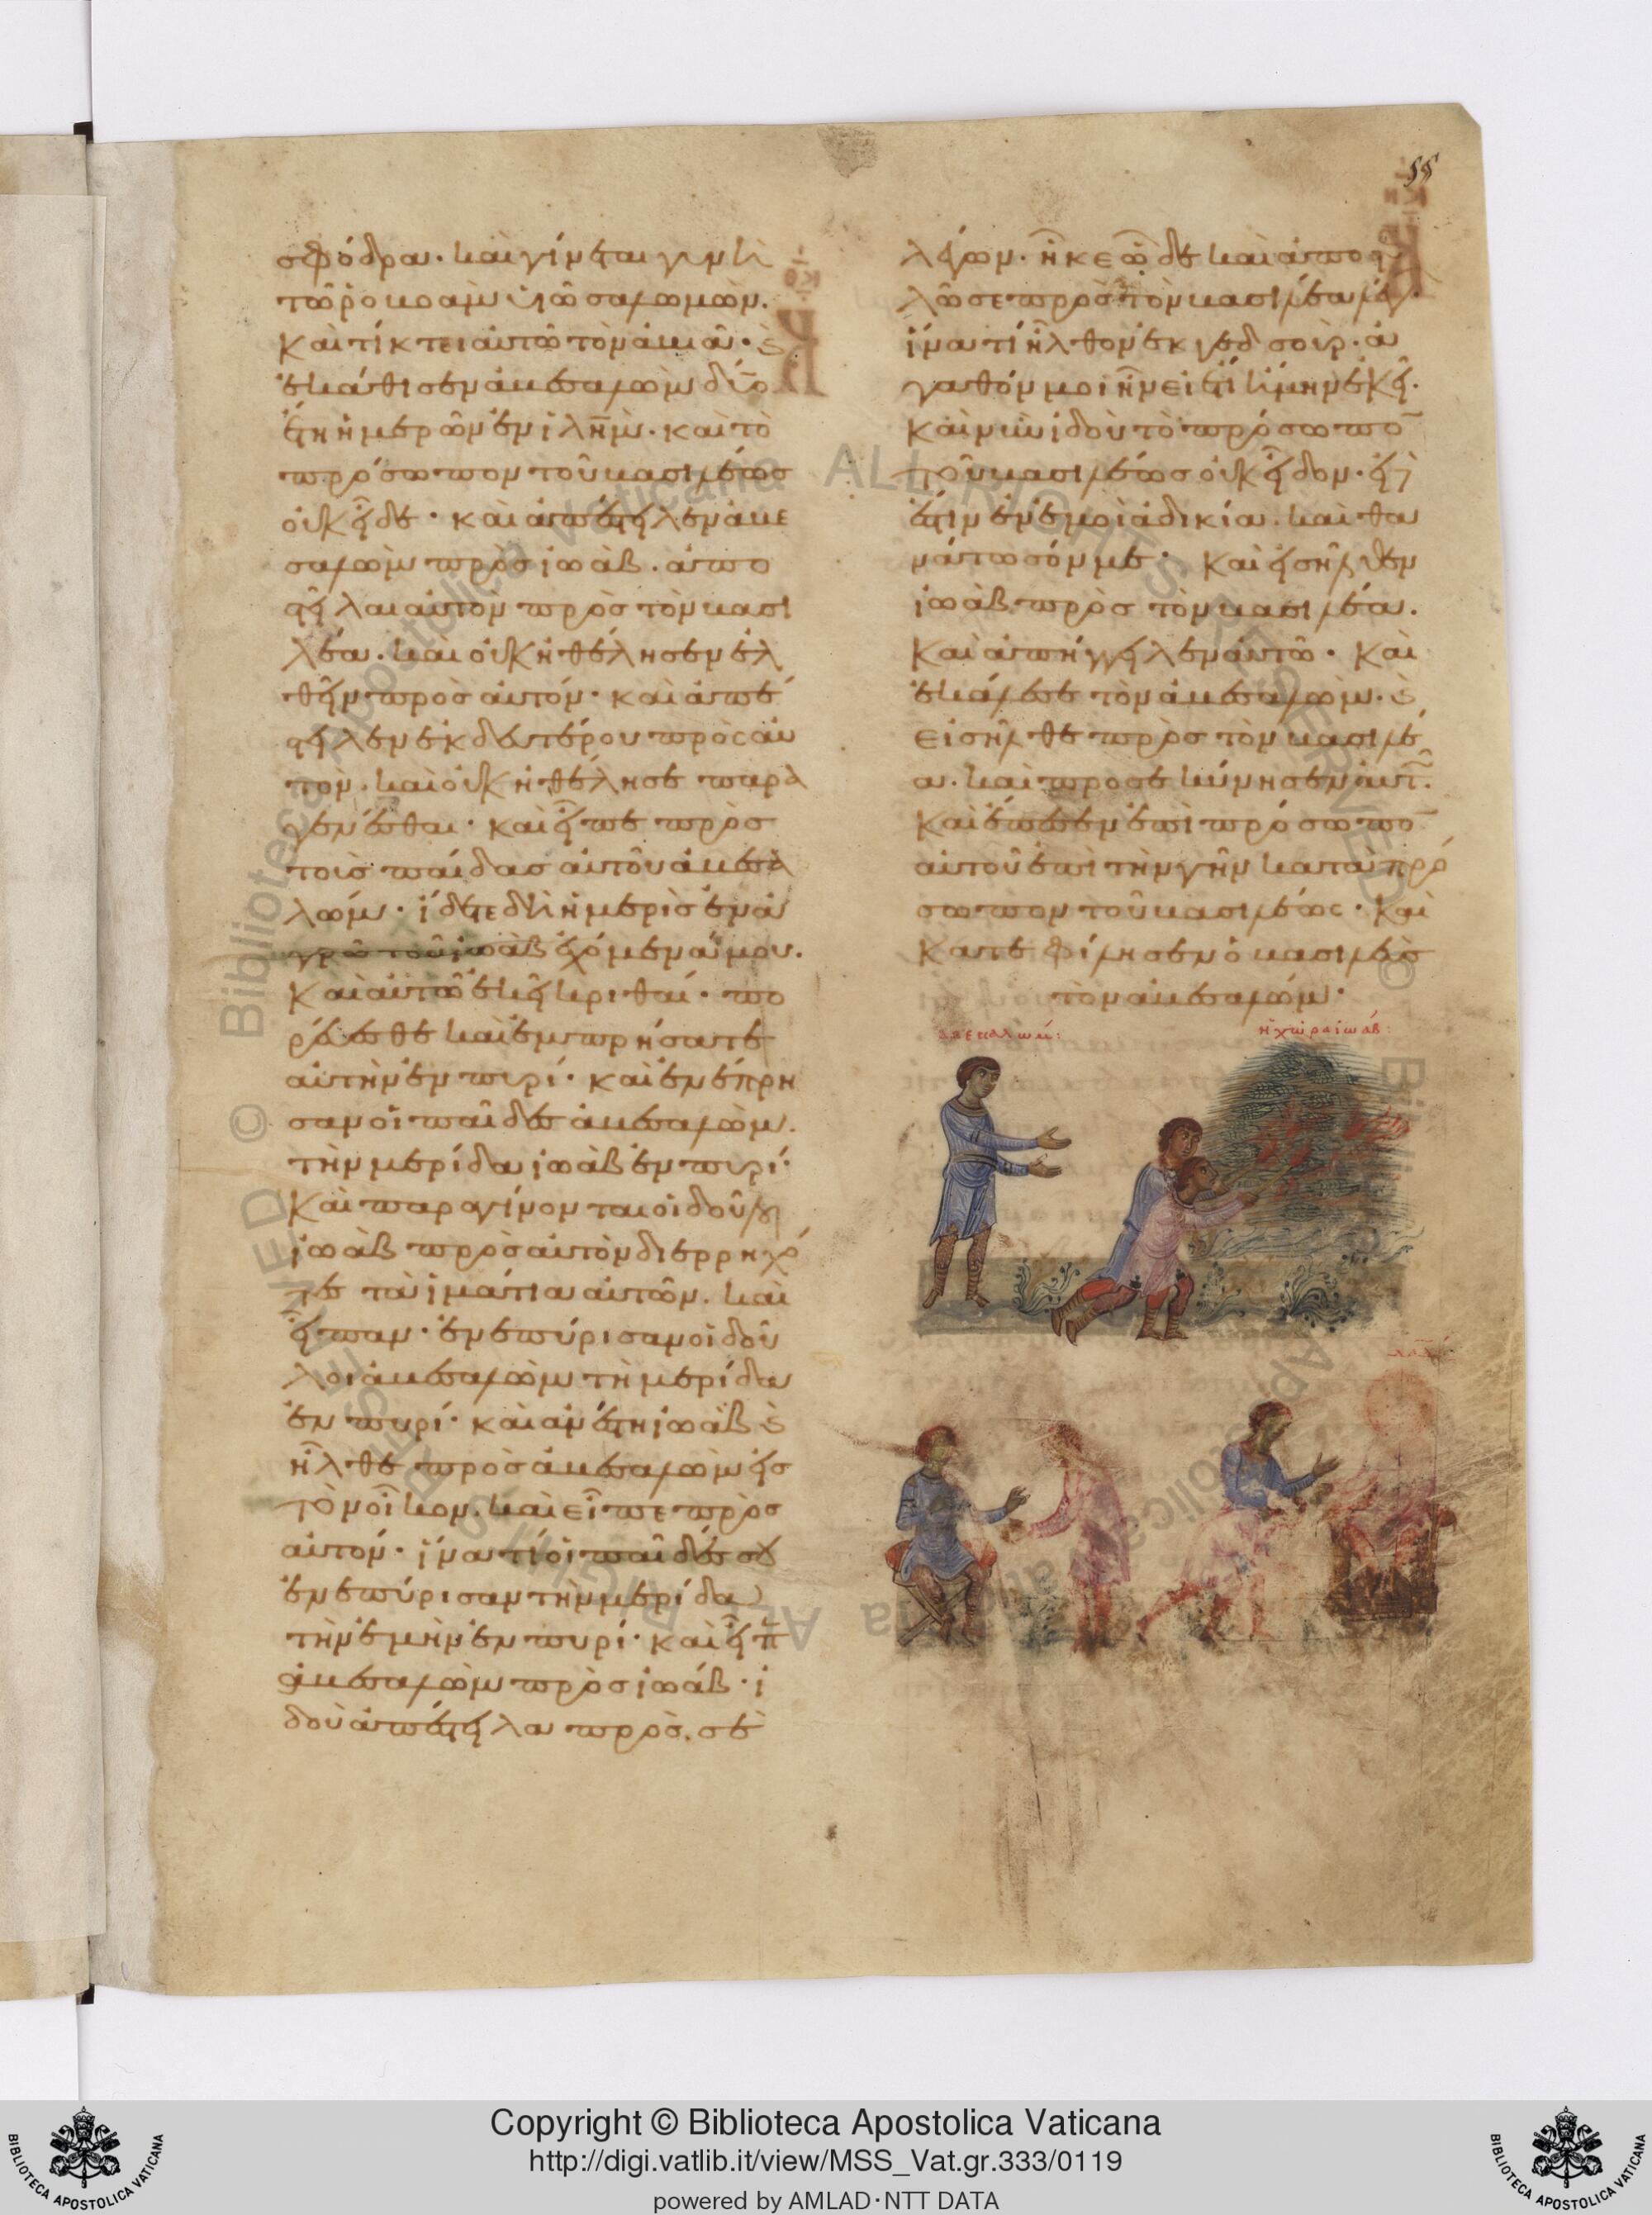 55
σφόδρα· καὶ γίνεται γυνὴ
τῶ ῥοβοὰμ υἱῶ σαλωμών.
καὶ τίκτει αὐτῶ τὸν ἀβιά·
ἐκάθισεν ἀβεσαλὼμ δύο
ἔτη ἡμερῶν ἐν ἱλῆμ. καὶ τὸ
πρόσωπον τοῦ βασιλέως
οὐκ εἶδε· καὶ ἀπέστειλεν ἀβε
σαλὼμ πρὸς ἰωάβ. ἀπο
στεῖλαι αὐτὸν πρὸς τὸν βασι
λέα. καὶ οὐκ ἠθέλησεν ἐλ
θεῖν προς αὐτόν· καὶ ἀπέ
στειλεν ἐκ δευτέρου πρὸς αὐ
τὸν. καὶ οὐκ ἠθέλησε παρα
γενέσθαι· καὶ εἶπε πρὸς
τοὺς παίδας αὐτοῦ ἀβεσα
λώμ· ἴδετε δὴ ἡ μερὶς ἐν ἀ
γρῶ τοῦ ἰωὰβ ἐχόμενά μου.
καὶ αὐτῶ ἐκεῖ κριθαί· πο
ρέυεσθε καὶ ἐμπρήσατε
αὐτὴν ἐν πυρί· καὶ ἐνέπρη
σαν οἱ παῖδες ἀβεσαλὼμ.
τὴν μερίδα ἰωὰβ ἐν πυρί·
καὶ παραγίνονται οἱ δοῦλοι
ἰωὰβ πρὸς αὐτὸν διερρηχό
τες τὰ ἱμάτια αὐτῶν. καὶ
εἶπαν· ἐνεπύρισαν οἱ δοῦ
λοι ἀβεσαλὼμ τὴ μερίδα
ἐν πυρί· καὶ ἀνέστη ἰωὰβ
ἦλθε πρὸς ἀβεσαλὼμ εἰς
τὸν οἶκον. καὶ εἶπε πρὸς
αὐτόν· ἵνα τί οἱ παῖδές σου
ἐνεπύρισαν τὴν μερίδα
τὴν ἐμὴν ἐν πυρί· καὶ εἶπ
ἀβεσαλὼμ πρὸς ἰωάβ· ἰ
δοὺ ἀπέστειλα πρὸς σὲ
λέγων· ἧκε ὧδε καὶ ἀποστε
λῶ σε πρὸς τὸν βασιλέα
ἵνα τί ἦλθον ἐκ γεδσούρ. ἀ
γαθόν μοι ἦν εἰ ἔτι ἤμην ἐκεῖ.
καὶ νῦν ἰδοὺ τὸ πρόσωπο
τοῦ βασιλέως οὐκ εἶδον· εἰ
ἔστιν ἐν ἐμοὶ ἀδικία. καὶ θα
νάτωσόν με· καὶ εἰσῆλθεν
ἰωὰβ πρὸς τὸν βασιλέα.
καὶ ἀπήγγειλεν αὐτῶ· καὶ
ἐκάλεσε τὸν ἀβεσαλὼμ.
εἰσῆλθε πρὸς τὸν βασιλέ
α. καὶ προσεκύνησεν αὐτ.
καὶ ἔπεσεν ἐπὶ πρόσωπο
αὐτοῦ ἐπὶ τὴν γῆν κατὰ πρό
σωπον τοῦ βασιλέως· καὶ
κατεφίλησεν ὁ βασιλεὺς
τὸν ἀβεσαλώμ·
ἀβεσαλωμ:
ἡ χώρα ἰωάβ:
Copyright © Biblioteca Apostolica Vaticana
http://digi.vatlib.it/view/MSS_Vat.gr.333/0119
powered by AMLAD·NTT DATA
BIBLIOTECA APOSTOLICA VATICANA
BIBLIOTECA APOSTOLICA VATICANA